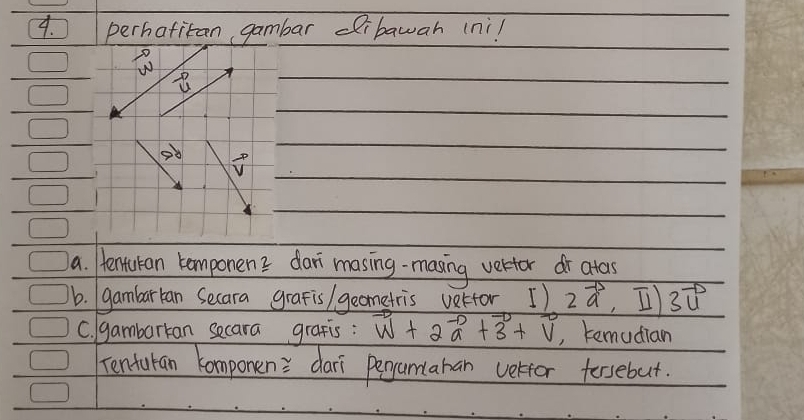 4. perhatikan gambar dibawah ini!
w
u
a
v
a. tentukan komponen2 dari masing-masing vektor di atas
b. gambarkan secara grafis/geometris vektor I) 2a, II) 3u
c. gambarkan secara grafis: w + 2a + 3 + v, kemudian
Tentukan komponen2 dari penjumlahan vektor tersebut.